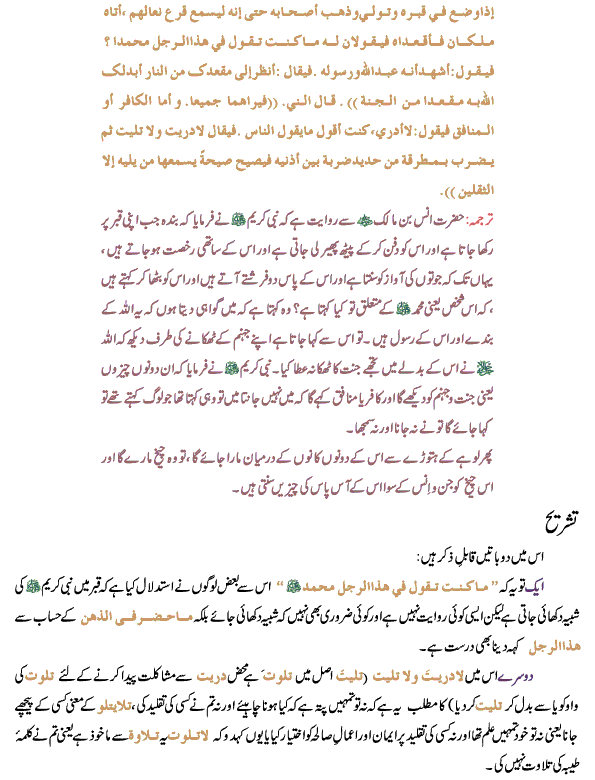 إذا وضع في قبره وتولي وذهب أصحابه حتى إنه ليسمع قرع نعالهم ،أتاه
ملكان فأقعداه فيقولان له ماكنت تقول في هذا الرجل محمدا ؟
فيقول :أشهدأنه عبدالله ورسوله .فيقال :أنظرإلى مقعدك من النار أبدلك
الله به مقعدا من الجنة )) . قال النبي. ((فيراهما جميعا. و أما الكافر أو
المنافق فيقول:لاأدري،كنت أقول مايقول الناس .فيقال لادريت ولا تليت ثم
يضرب بمطرقة من حديدضربة بين أذنيه فيصيح صيحةً يسمعها من يليه إلا
الثقلين )).
ترجمہ: حضرت انس بن مالک ﷜ سے روایت ہے کہ نبی کریم ﷺ نے فرمایا کہ بندہ جب اپنی قبر پر
رکھا جاتا ہے اور اس کو دفن کر کے پیٹھ پھیر لی جاتی ہے اور اس کے ساتھی رخصت ہوجاتے ہیں ،
یہاں تک کہ جوتوں کی آواز کو سنتا ہے اور اس کے پاس دو فرشتے آتے ہیں اور اس کو بٹھا کر کہتے ہیں
،کہ اس شخص یعنی محمد ﷺ کے متعلق تو کیا کہتا ہے؟ وہ کہتا ہے کہ میں گواہی دیتا ہوں کہ یہ اللہ کے
بندے اور اس کے رسول ہیں ۔ تو اس سے کہا جاتا ہے اپنے جہنم کے ٹھکانے کی طرف دیکھ کہ اللہ
ﷻ نے اس کے بدلے میں تجھے جنت کا ٹھکانہ عطا کیا۔ نبی کریم ﷺ نے فرمایا کہ ان دونوں چیزوں
یعنی جنت و جہنم کو دیکھے گا اور کافر یا منافق کہے گا کہ میں نہیں جانتا میں تو وہی کہتا تھا جو لوگ کہتے تھے تو
کہا جائے گا تو نے نہ جانا اور نہ سمجھا۔
پھر لوہے کے ہتوڑے سے اس کے دونوں کانوں کے درمیان مارا جائے گا ، تو وہ چیخ مارے گا اور
اس چیخ کو جن و انس کے سوا اس کے آس پاس کی چیزیں سنتی ہیں ۔
تشریح
اس میں دو باتیں قابلِ ذکر ہیں :
ایک تو یہ کہ ” ماكنت تقول في هذا الرجل محمد ﷺ “ اس سے بعض لوگوں نے استدلال کیا ہے کہ قبر میں نبی کریم ﷺ کی
شبیہ دکھائی جاتی ہے لیکن ایسی کوئی روایت نہیں ہے اور کوئی ضروری بھی نہیں کہ شبیہ دکھائی جائے بلکہ ماحضر في الذهن کے حساب سے
هذا الرجل کہہ دینا بھی درست ہے ۔
دوسرے اس میں لادريتَ ولا تليت (تليتَ اصل میں تلوتَ ہے محض دریت سے مشاکلت پیدا کرنے کے لئے تلوت کی
واو کو یا سے بدل کر تلیت کردیا ) کا مطلب یہ ہے کہ نہ تو تمہیں پتہ ہے کہ کیا ہونا چاہیئے اور نہ تم نے کسی کی تقلید کی ، تلايتلو کے معنی کسی کے پیچھے
جانا یعنی نہ تو خود تمہیں علم تھا اور نہ کسی کی تقلید پر ایمان اور اعمالِ صالحہ کو اختیار کیا یا یوں کہدو کہ لاتلوت یہ تلاوة سے ماخوذ ہے یعنی تم نے کلمۂ
طیبہ کی تلاوت نہیں کی ۔